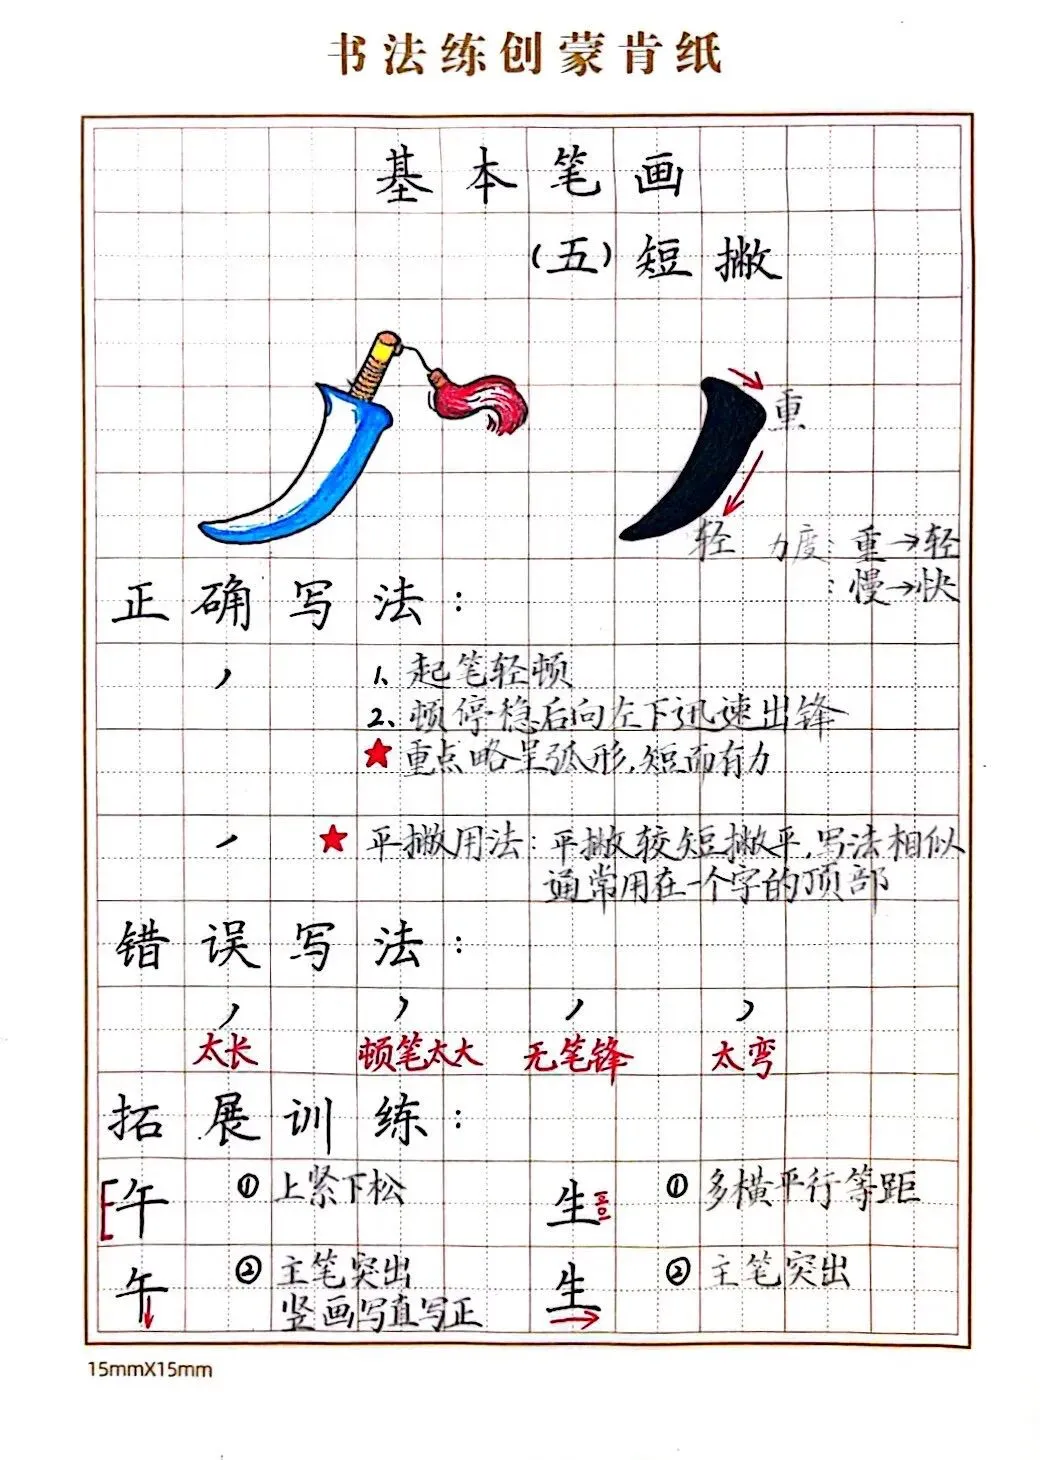 书法练创蒙肯纸
基本笔画
(五)短撇
重
轻 力度:重→轻
:慢→快
正确写法:
1、起笔轻顿
2、顿停稳后向左下迅速出锋
★重点略呈弧形,短而有力
★平撇用法:平撇较短撇平,写法相似
通常用在一个字的顶部
错误写法:
太长 顿笔太大 无笔锋 太弯
拓展训练:
午 ①上紧下松 生 ①多横平行等距
午 ②主笔突出 生 ②主笔突出
竖画写直写正
15mmX15mm